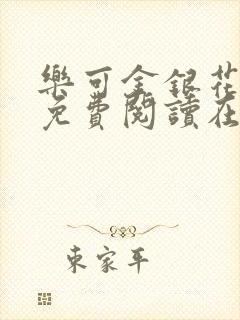 樂可金銀花
免費閱讀在
東家平